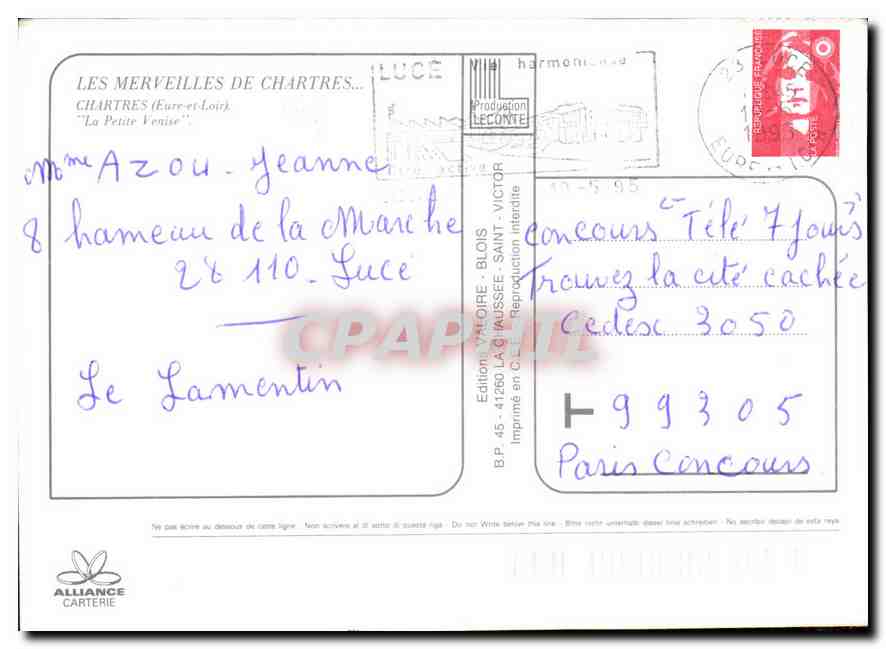 LES MERVEILLES DE CHARTRES...
CHARTRES (Eure-et-Loir).
"La Petite Venise".
Mme Azou - Jeanne
8 hameau de la Marche
28 110 - Lucé
Le Lamentin
LUCE
Vie harmonieuse
Production
LECONTE
10-5-95
REPUBLIQUE FRANÇAISE
LA POSTE
Editions VALOIRE - BLOIS
B.P. 45 - 41260 LA CHAUSSEE - SAINT - VICTOR
Imprimé en C.E.E. Reproduction interdite
concours "Télé 7 Jours"
Trouvez la cité cachée
Cedex 3050
T 99305
Paris Concours
CPAPHIL
Ne pas écrire au dessous de cette ligne - Non scrivere al di sotto di questa riga - Do not Write below this line - Bitte nicht unterhalb dieser linie schreiben - No escribir debajo de esta raya
ALLIANCE
CARTERIE